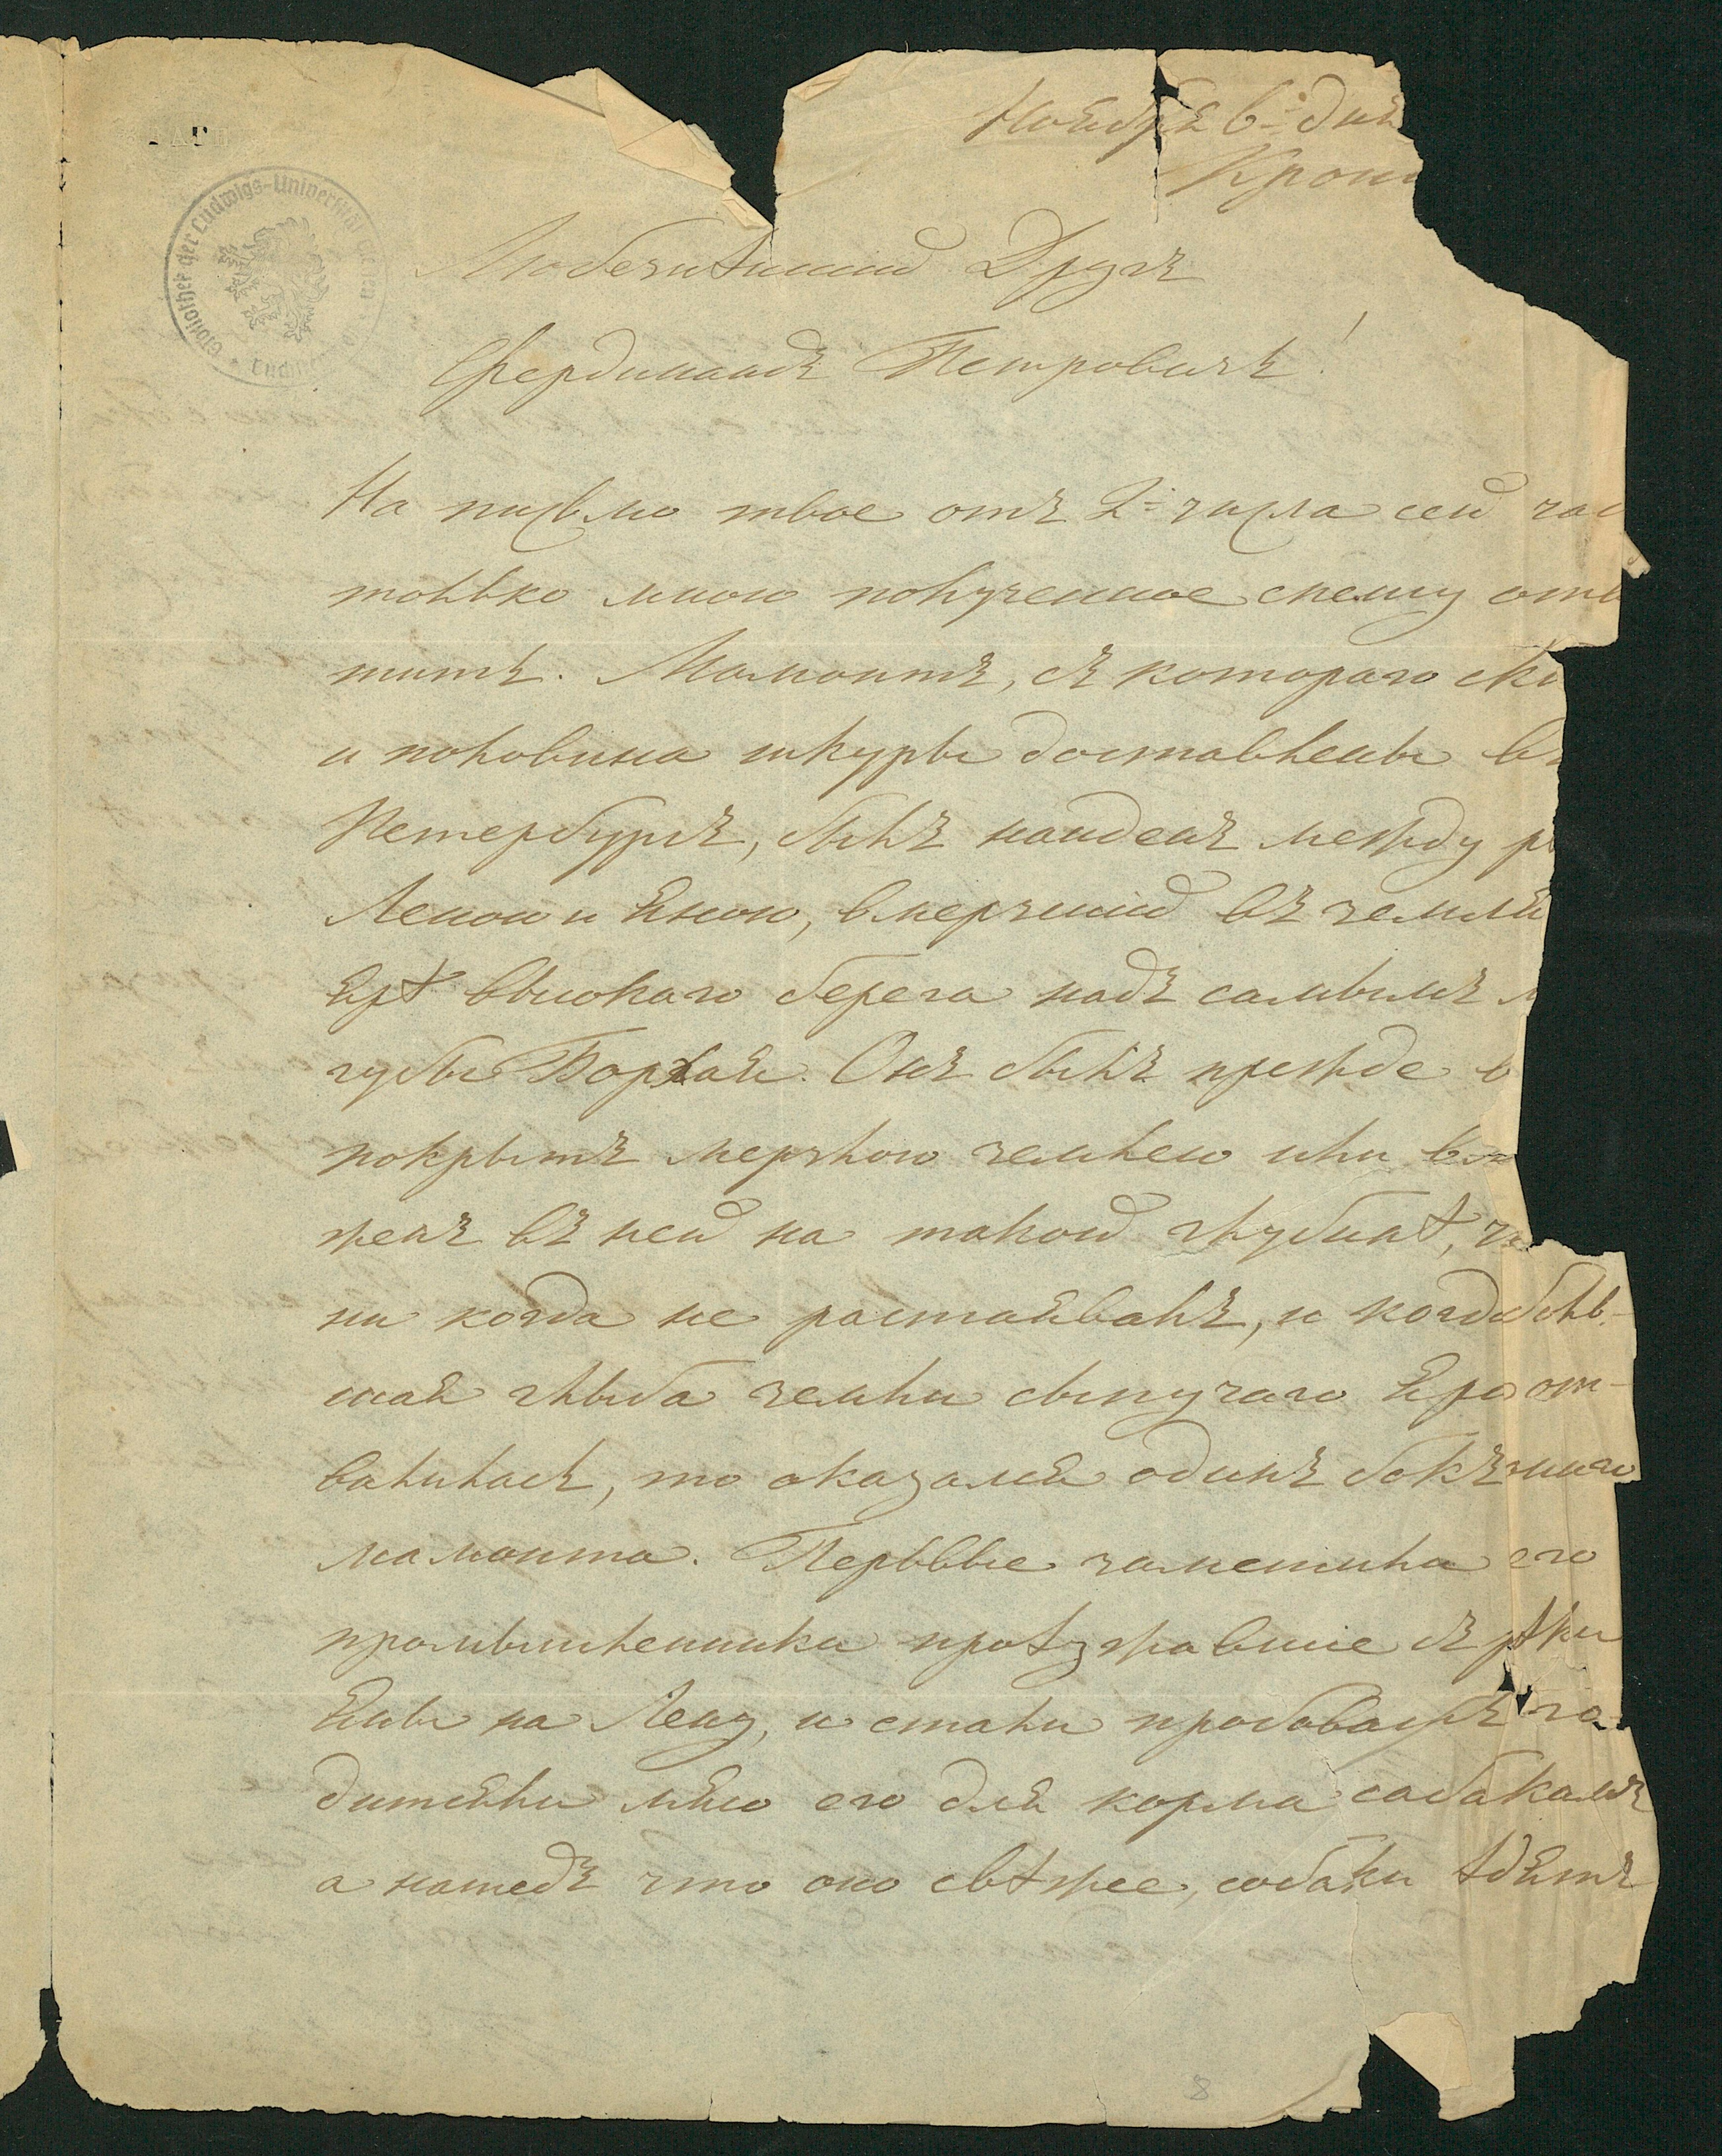 Ноября 6-дня
Крон
Любезнѣйшій Другъ
Фердинандъ Петровичъ!
На письмо твое отъ 2-числа сей час
только мною полученное спешу отве
тить. Мамонтъ, съ котораго ске
и половина шкуры доставлены въ
Петербургъ, былъ найденъ между р
Леною и Яною, вмерзшій въ земли
ярѣ высокаго берега надъ самымъ м
губы Борхая. Онъ былъ прежде в
покрытъ мерзлою землею или вло
женъ въ ней на такой глубинѣ, ч
ни когда не растаявалъ, и когда боль-
шая глыба земли сыпучаго Яра от-
валилась, то оказался одинъ бокъ
мамонта. Первые заметили его
промышленники проѣзжавшіе съ рѣки
Яны на Лену, и стали пробовать го-
дитсяли мясо его для корма собакамъ
а нашедъ что оно свѣжее, собаки ѣдятъ
Bibliothek der Ludwigs-Universität Giessen
8